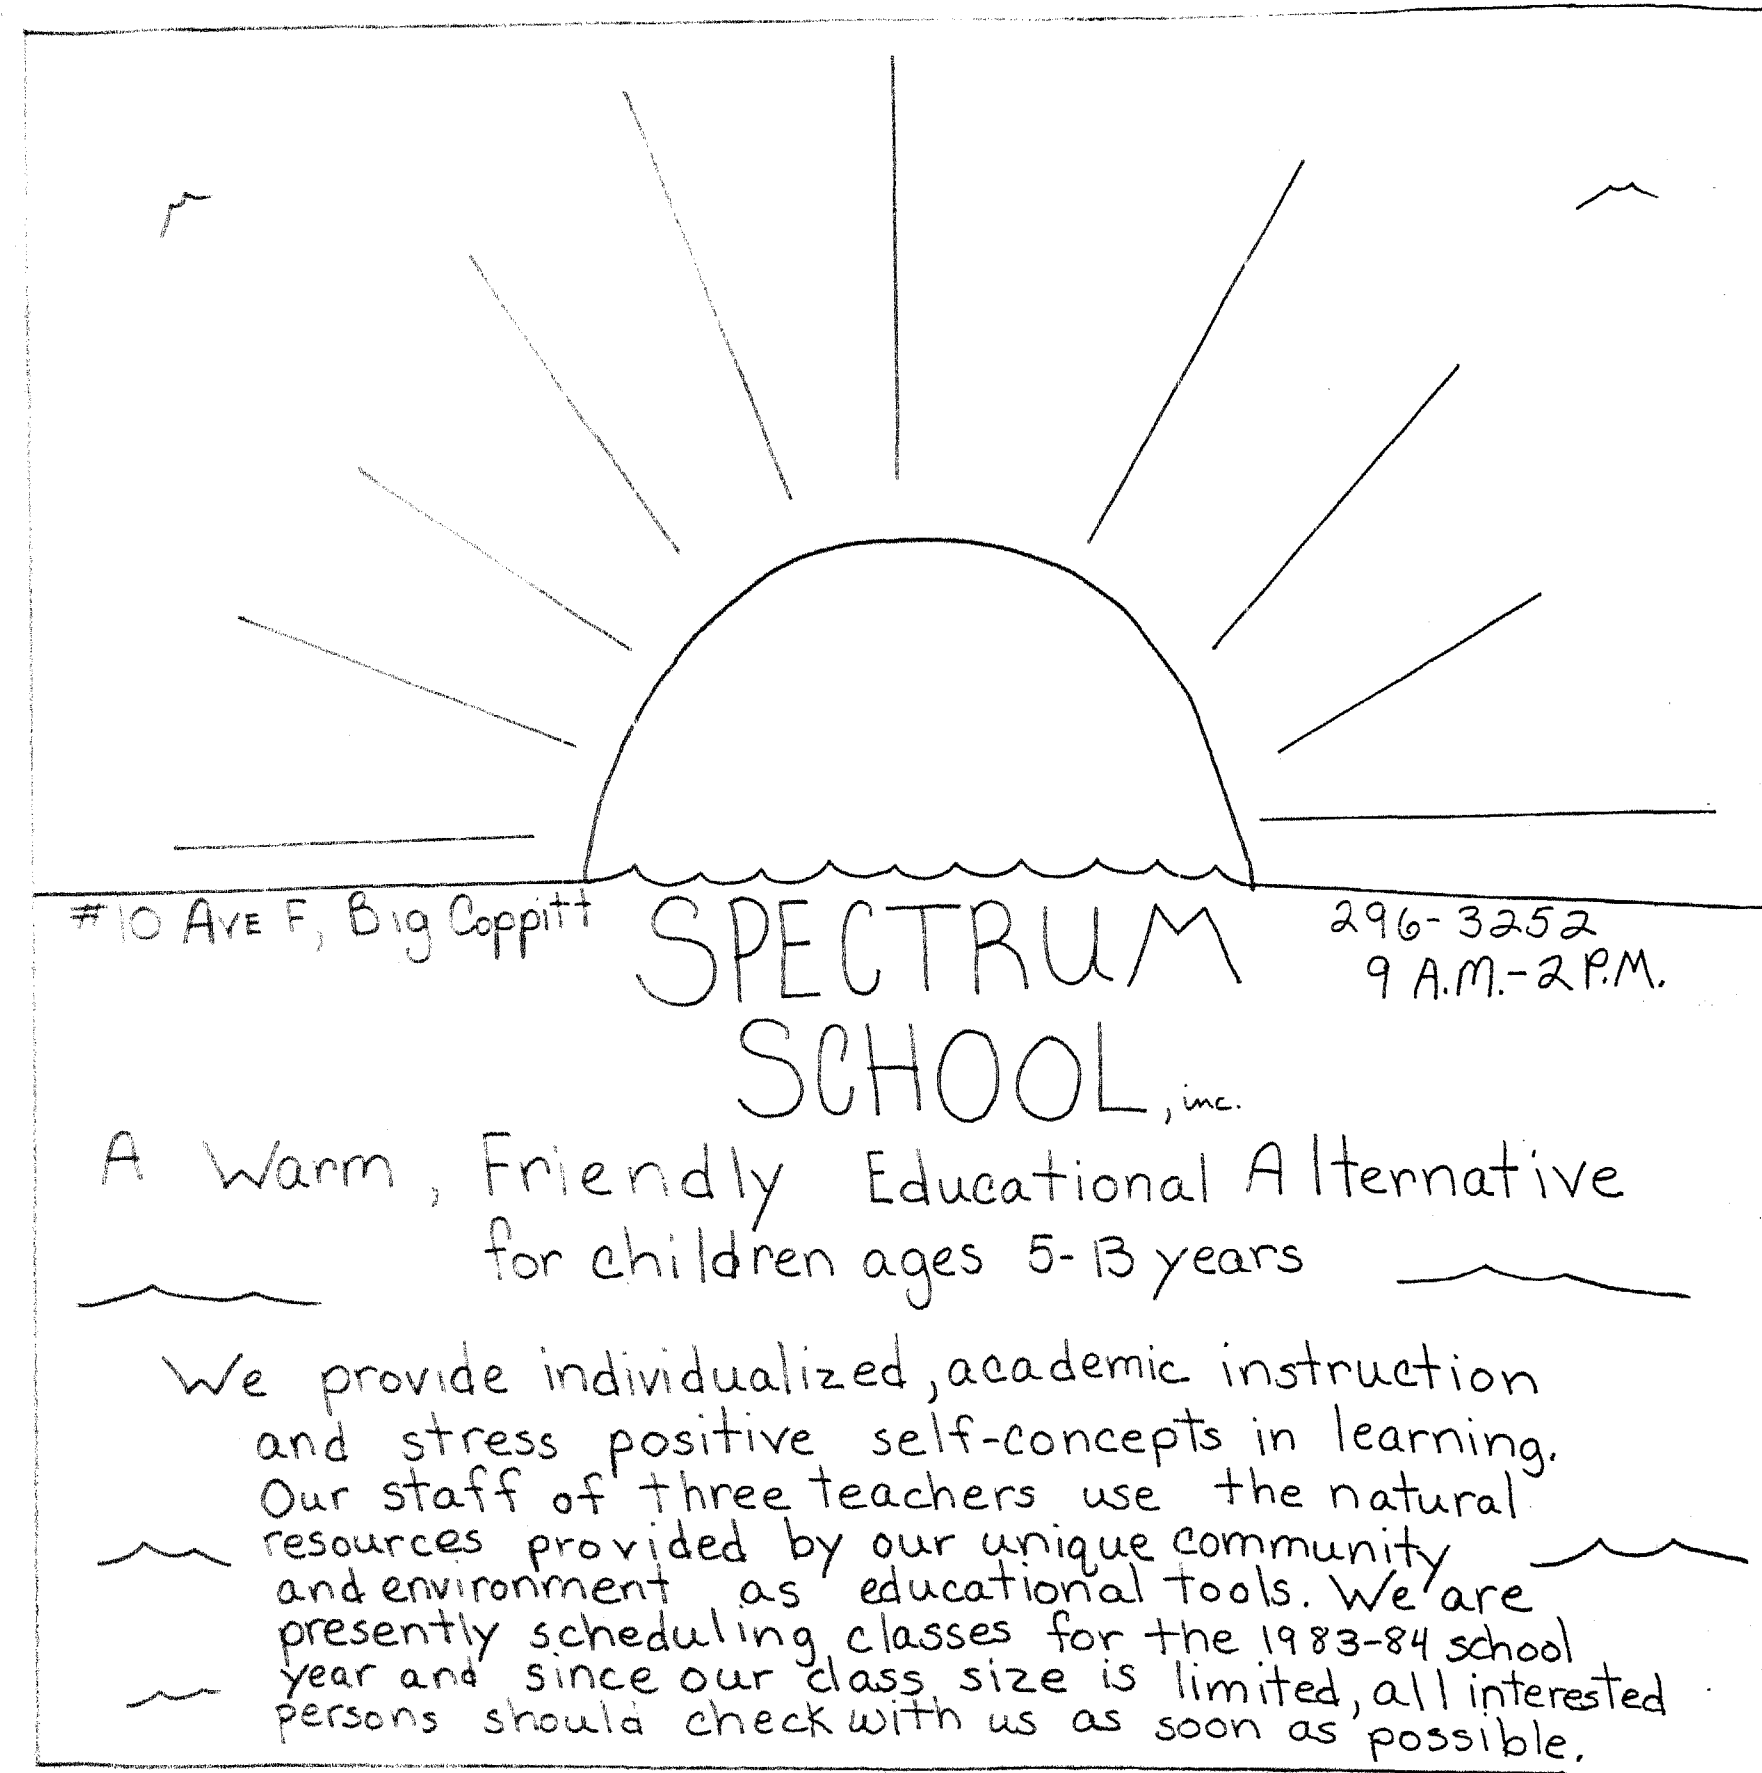 #10 AVE F, Big Coppitt
SPECTRUM
296-3252
9 A.M.-2 P.M.
SCHOOL, inc.
A Warm, Friendly Educational Alternative
for children ages 5-13 years
We provide individualized, academic instruction
and stress positive self-concepts in learning.
Our staff of three teachers use the natural
resources provided by our unique community
and environment as educational tools. We are
presently scheduling classes for the 1983-84 school
year and since our class size is limited, all interested
persons should check with us as soon as possible.